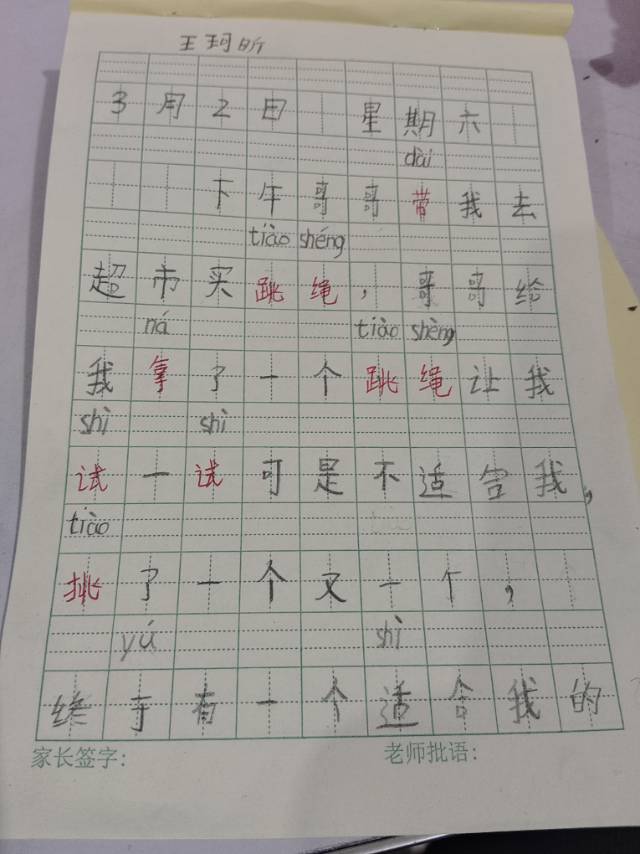 王珂昕
3月2日 星期六
dài
下午哥哥带我去
tiào shéng
超市买跳绳，哥哥给
ná tiào shèng
我拿了一个跳绳让我
shì shì
试一试可是不适合我，
tiào
挑了一个又一个，
yú shì
终于有一个适合我的
家长签字： 老师批语：